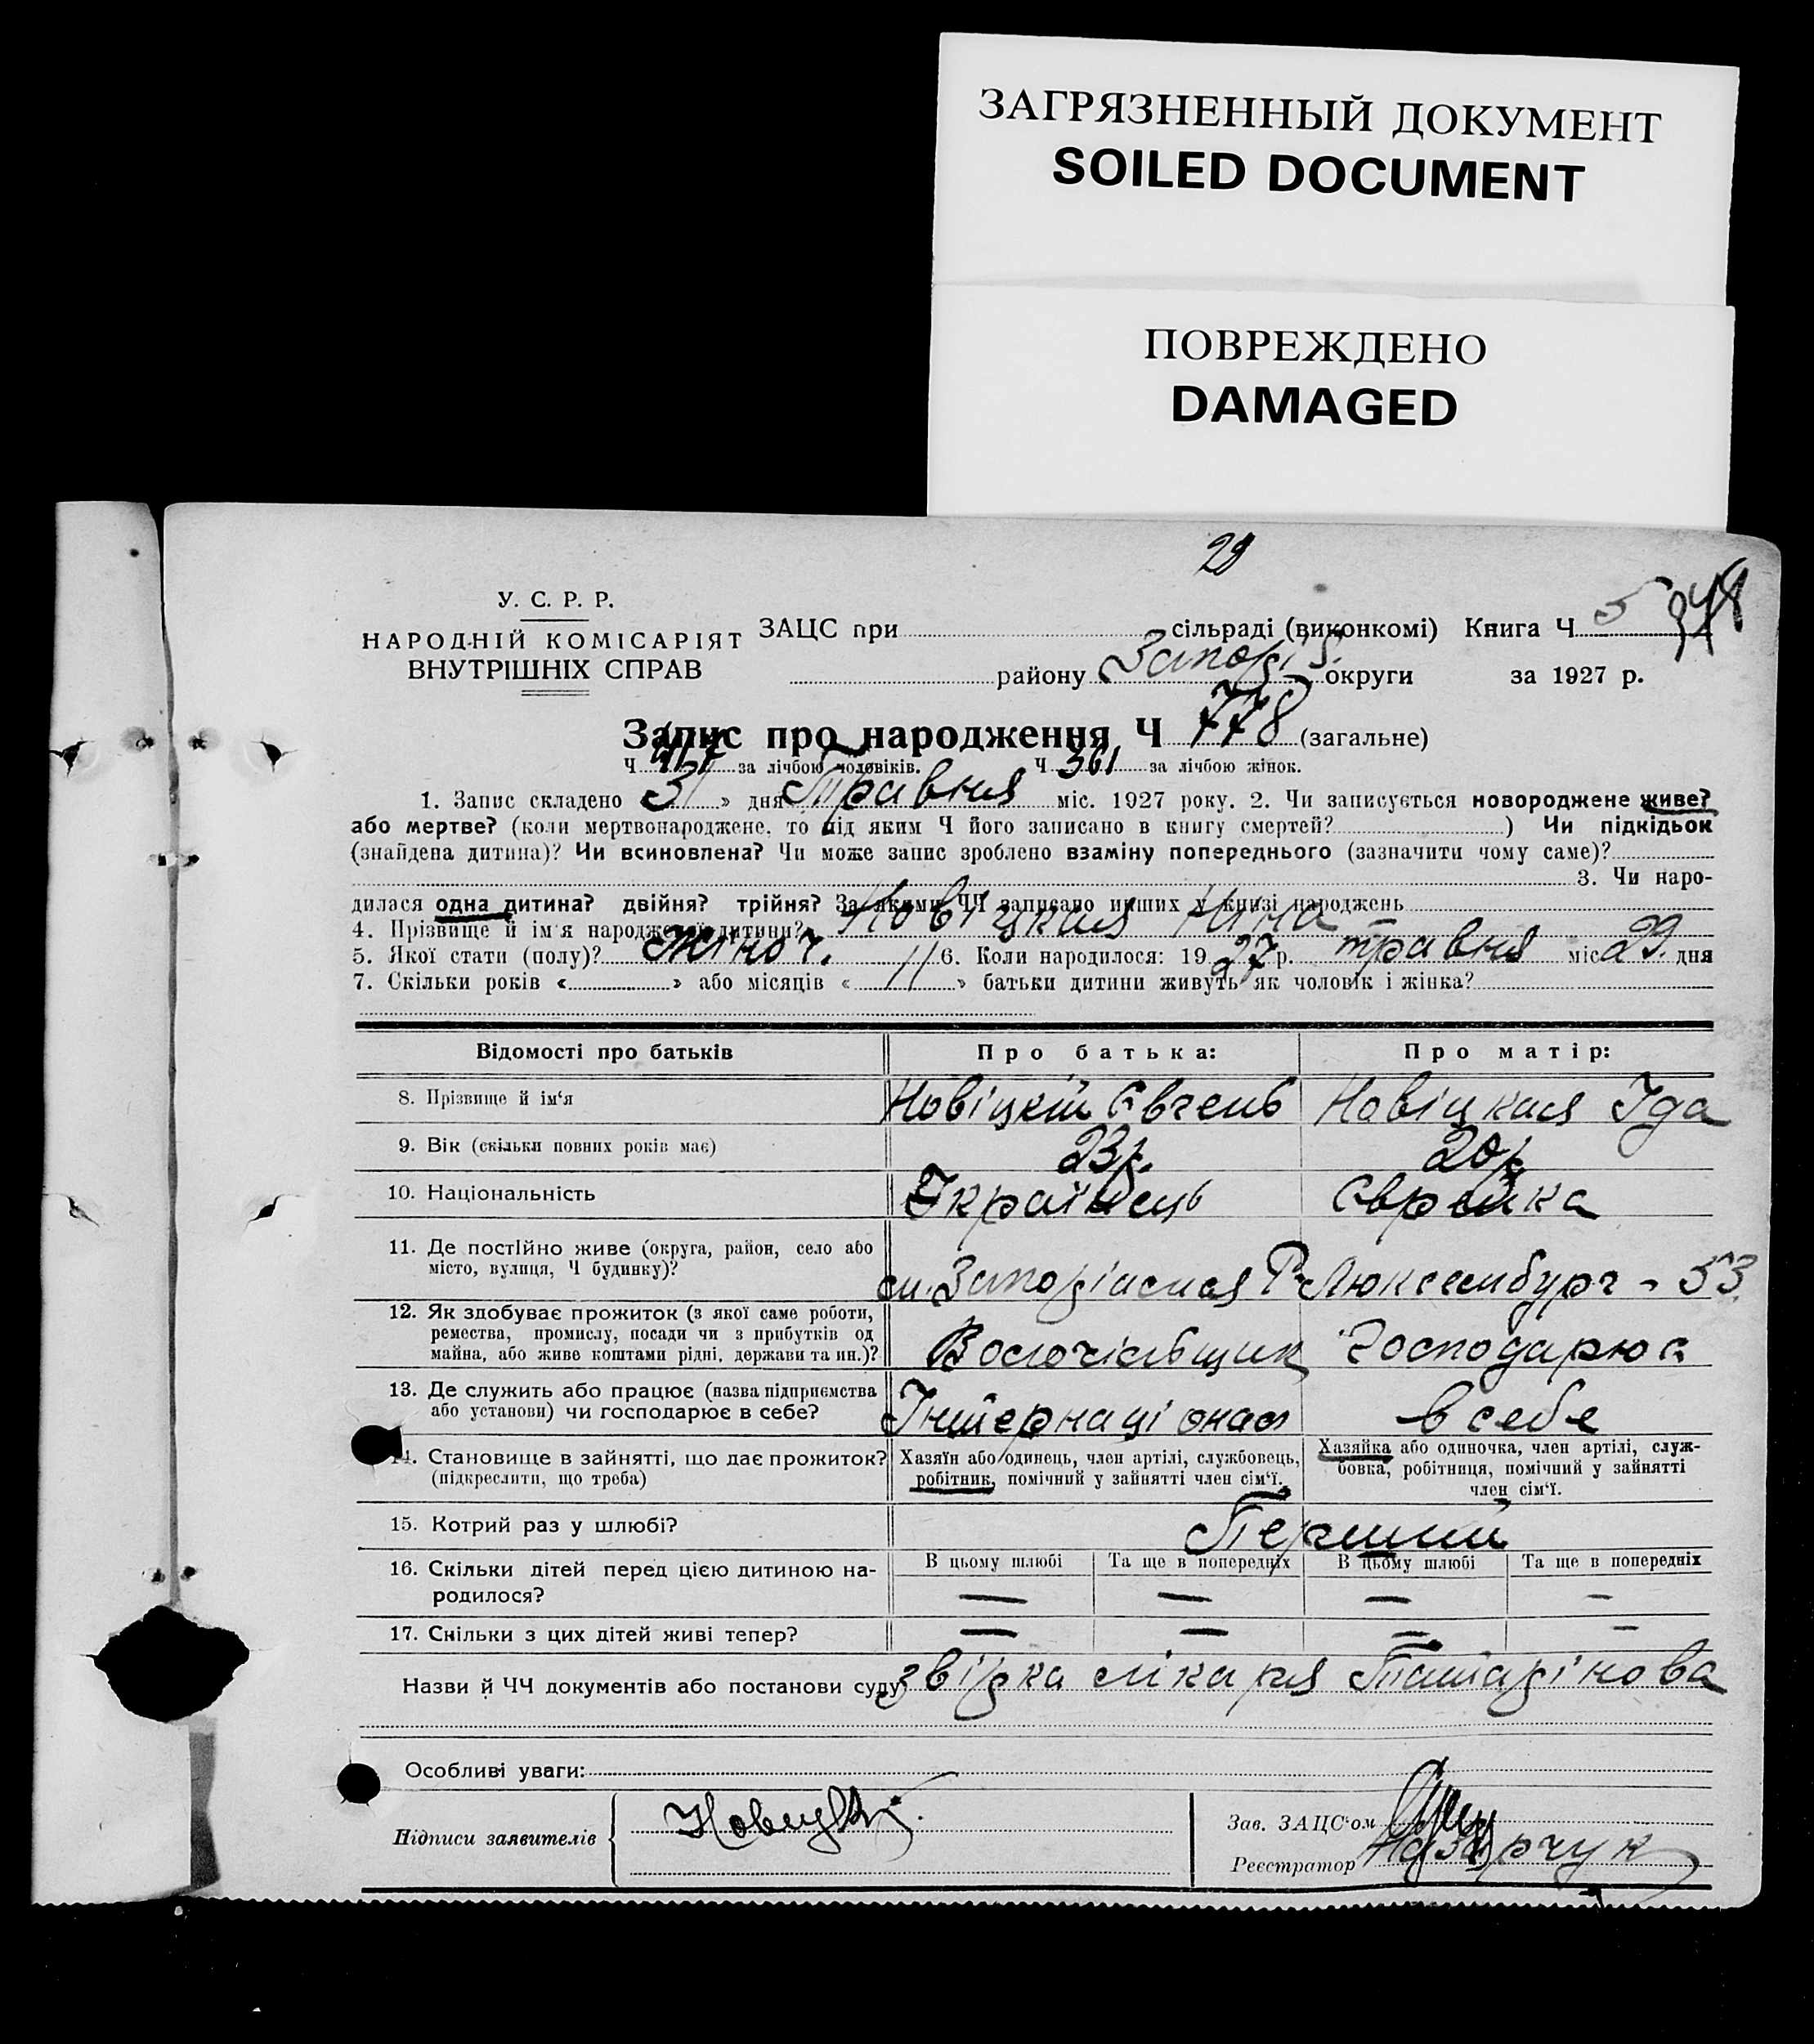 ЗАГРЯЗНЕННЫЙ ДОКУМЕНТ
SOILED DOCUMENT
ПОВРЕЖДЕНО
DAMAGED
29
У. С. Р. Р.
НАРОДНІЙ КОМІСАРІЯТ
ВНУТРІШНІХ СПРАВ
ЗАЦС при сільраді (виконкомі) Книга Ч 5 348
району Запоріз. округи за 1927 р.
Запис про народження Ч 778 (загальне)
Ч 417 за лічбою чоловіків. Ч 361 за лічбою жінок.
1. Запис складено «31» дня Травня міс. 1927 року. 2. Чи записується новороджене живе?
або мертве? (коли мертвонароджене, то під яким Ч його записано в книгу смертей? ) Чи підкідьок
(знайдена дитина)? Чи всиновлена? Чи може запис зроблено взаміну попереднього (зазначити чому саме)?
3. Чи наро-
дилася одна дитина? двійня? трійня? За якими ЧЧ записано инших у книзі народжень
4. Прізвище й ім'я народженої дитини? Новіцкая Ніна
5. Якої стати (полу)? жіноч. 6. Коли народилося: 1927 р. травня міс. 29. дня
7. Скільки років « » або місяців « 11 » батьки дитини живуть як чоловік і жінка?
Відомості про батьків Про батька: Про матір:
8. Прізвище й ім'я Новіцкій Євгень Новіцкая Іда
9. Вік (скільки повних років має) 23 р. 20 р.
10. Національність Українець Єврейка
11. Де постійно живе (округа, район, село або
місто, вулиця, Ч будинку)? Запоріжжя Р. Люксембург - 53
12. Як здобуває прожиток (з якої саме роботи,
ремества, промислу, посади чи з прибутків од
майна, або живе коштами рідні, держави та ин.)? Господарює
13. Де служить або працює (назва підприємства
або установи) чи господарює в себе? Інтернаціонал в себе
14. Становище в зайнятті, що дає прожиток?
(підкреслити, що треба)
Хазяїн або одинець, член артілі, службовець,
робітник, помічний у зайнятті член сім'ї.
Хазяйка або одиночка, член артілі, служ-
бовка, робітниця, помічний у зайнятті
член сім'ї.
15. Котрий раз у шлюбі? Перший
16. Скільки дітей перед цією дитиною на-
родилося?
В цьому шлюбі Та ще в попередніх В цьому шлюбі Та ще в попередніх
— — — —
17. Скільки з цих дітей живі тепер? — — — —
Назви й ЧЧ документів або постанови суду звірка лікаря Татарінова
Особливі уваги:
Підписи заявителів Новицкий
Зав. ЗАЦС'ом
Реєстратор Назарчук